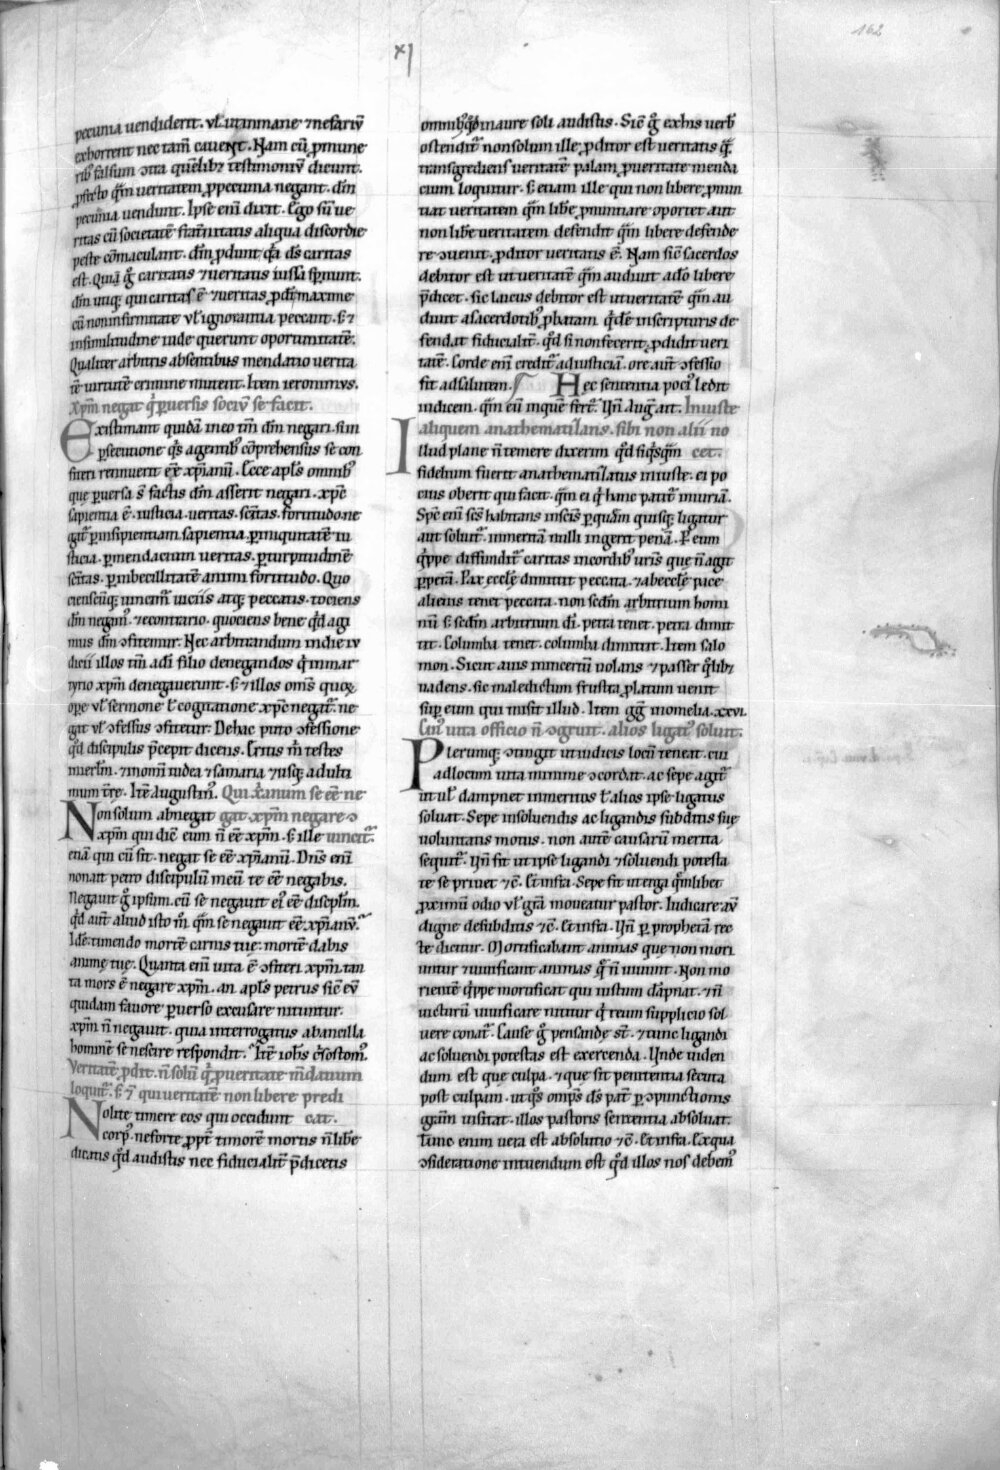 162
xj
pecunia uendiderit. vl̓ utinmane ⁊nefariũ
exhorrent nec tam̃ cauent. Nam cũ ꝓmune
rib⁹ falsum ɔtra quẽlibꝫ testimoniũ dicunt.
ꝓfecto qm̃ ueritatem ꝓpecunia negant. dñm
pecunia uendunt. Ipse enĩ dixit. Ego sũ ue
ritas cũ societatẽ fraternitatis aliqua discordie
peste cõmaculant. dñm ꝓdunt q̃a ds̃ caritas
est. Qui g̊ caritatis ⁊ueritatis iussa spernunt.
dñm utiqꝫ qui caritas ẽ ⁊ueritas ꝓdunt maxime
cũ noninfirmitate vl̓ ignorantia peccant. sꝫ
insimilitudine iude querunt oportunitatẽ.
Qualiter arbitris absentibus mendatio uerita
tẽ uirtutẽ crimine mutent. Item ieronimus.
Xp̃m negat q̇ ꝑuersis sociũ se facit.
Existimant quidã ineo tm̃ dñm negari. si in
ꝑsecutione q̃s agentib⁹ cõprehensus se con
fiteri rennuerit eẽ xp̃ianũ. Ecce apl̃s omnib⁹
que ꝑuersa s̃ factis dñm asserit negari. xp̃c
sapientia ẽ. iusticia. ueritas. sc̃itas. fortitudo. ne
gat̃ ꝑinsipientiam sapientia. ꝑiniquitatẽ iu
sticia. ꝑmendacium ueritas. ꝑturpitudinẽ
sc̃itas. ꝑimbecillitatẽ animi fortitudo. Quo
cienscũqꝫ uincim̃ uiciis atqꝫ peccatis. tociens
dñm negam⁹. ⁊econtrario. quociens bene q̃d agi
mus dñm ɔfitemur. Nec arbitrandum indie iu
dicii illos tm̃ adĩ filio denegandos q̇ inmar
tyrio xp̃m denegauerunt. sꝫ ⁊illos om̃s quoꝝ
oꝑe vl̓ sermone l̓ cogitatione xp̃c negat̃. ne
gat vl̓ ɔfessus ɔfitetur. Dehac puto ɔfessione
q̃d discipulis p̃cepit dicens. Eritis m̃ testes
inierlm̃. ⁊inomĩ iudea ⁊samaria ⁊usqꝫ adulti
mum tr̃e. Itẽ Augustin⁹. Qui xr̃anum se eẽ ne
Non solum abnegat gat xp̃m negare ɔ
xp̃m qui diĉ eum ñ eẽ xp̃m. sꝫ ille uincit̃.
etiã qui cũ sit. negat se eẽ xp̃ianũ. Dñs enĩ
non ait petro discipulũ meũ te eẽ negabis.
Negauit g̊ ipsum. cũ se negauit ei⁹ eẽ disciplm̃.
q̃d aut̃ aliud isto m̃ qm̃ se negauit eẽ xp̃ianũ.
Idẽ. timendo mortẽ carnis tuę. mortẽ dabis
animę tuę. Quanta enĩ uita ẽ ɔfiteri xp̃m. tan
ta mors ẽ negare xp̃m. an apl̃s petrus siĉ eũ
quidam fauore ꝑuerso excusare nituntur.
xp̃m ñ negauit. quia interrogatus abancilla
hominẽ se nescire respondit. Itẽ ioh̃s cr̃isostom⁹.
Veritatẽ ꝓdit. ñ solũ q̇ ꝓueritate m̃datium
loquit̃. sꝫ ⁊ qui ueritatẽ non libere predi
Nolite timere eos qui occidunt cat.
corp⁹. neforte ꝓpt̃ timorẽ mortis ñ libe
dicatis q̃d audistis nec fiducialit̃ p̃dicetis
omnib⁹ q̃d in aure soli audistis. Siĉ g̊ exhis uerb⁹
ostendit̃ nonsolum ille ꝓditor est ueritatis q̇
transgrediens ueritatẽ palam ꝓueritate menda
cium loquitur. sꝫ etiam ille qui non libere ꝓnun
tiat ueritatem qm̃ libe ꝓnuntiare oportet aut
non libe ueritatem defendit qm̃ libere defende
re ɔuenit. ꝓditor ueritatis ẽ. Nam siĉ sacerdos
debitor est ut ueritatẽ qm̃ audiuit adõ libere
p̃dicet. sic laicus debitor est ut ueritatẽ qm̃ au
diuit asacerdotib⁹ ꝓbatam q̃dẽ inscripturis de
fendat fiducialit̃. q̃d si nonfecerit ꝓdidit ueri
tatẽ. Corde enĩ credit̃ adiusticiã. ore aut̃ ɔfessio
fit adsalutem. Hec sententia poci⁹ ledit
iudicem. qm̃ eũ inquẽ fert̃. Uñ Aug̃ ait. Iniuste
aliquem anathematizans. sibi non alii no
Illud plane ñ temere dixerim q̃d siq̃sq̃m cet.
fidelium fuerit anathematizatus iniuste. ei po
cius oberit qui facit. qm̃ ei q̇ hanc patit̃ iniuriã.
Spc̃ enĩ sc̃s habitans insc̃is ꝑquẽm quisqꝫ ligatur
aut soluit̃. inmeritã nulli ingerit penã. Ꝑ eum
q̇ppe diffundit̃ caritas incordib⁹ nr̃is que ñ agit
ꝑperã. Pax ecclę̃ dimittit peccata. ⁊abecclę̃ pace
alienis tenet peccata. non secdm̃ arbitrium homi
nũ sꝫ secdm̃ arbitrium dĩ. petra tenet. petra dimit
tit. Columba tenet. columba dimittit. Item salo
mon. Sicut auis inincertũ uolans ⁊passer q̃libꝫ
uadens. sic maledictum frustra ꝓlatum uenit
sup̃ eum qui misit illud. Item g̃g̃ inomelia. xxvi.
Cui⁹ uita officio ñ ɔgruit. alios ligat⁹ soluit.
Plerumqꝫ ɔtingit ut iudicis locũ teneat. cui
adlocum uita minime ɔcordat. ac sepe agit̃
ut ul̓ dampnet inmeritos l̓ alios ipse ligatus
soluat. Sepe insoluendis ac ligandis subditis suę
uoluntatis motus. non autẽ causarũ merita
sequit̃. Uñ fit ut ipse ligandi ⁊soluendi potesta
te se priuet ⁊c̃. Et infra. Sepe fit ut erga q̃mlibet
ꝓximũ odio vl̓ gr̃a moueatur pastor. Iudicare aũ
digne desubditis ⁊c̃. Et infra. Uñ ꝑ prophetã rec
te dicitur. Mortificabant animas que non mori
untur ⁊uiuificant animas q̃ ñ uiuunt. Non mo
rientẽ q̇ppe mortificat qui iustum dãpnat. ⁊ñ
uicturũ uiuificare nititur q̇ reum supplicio sol
uere conat̃. Cause g̊ pensande st̃. ⁊tunc ligandi
ac soluendi potestas est exercenda. Unde uiden
dum est que culpa. ⁊que sit penitentia secuta
post culpam. ut q̃s omp̃s ds̃ pat̃ ꝑ ɔpunctionis
gr̃am uisitat. illos pastoris sententia absoluat.
Tunc enim uera est absolutio ⁊c̃. Et infra. Ex qua
ɔsideratione intuendum est q̃d illos nos debem⁹